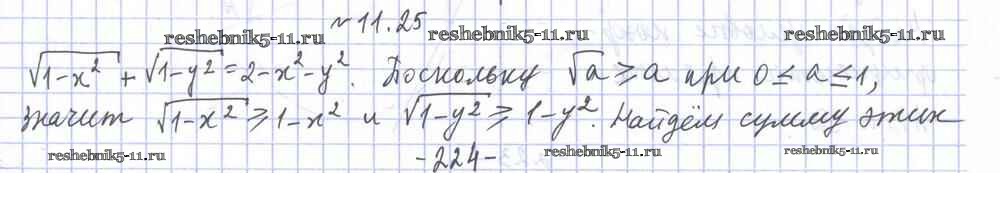 № 11.25
reshebnik5-11.ru reshebnik5-11.ru reshebnik5-11.ru
√1-x² + √1-y² = 2-x²-y². Поскольку √a ≥ a при 0 ≤ a ≤ 1,
значит √1-x² ≥ 1-x² и √1-y² ≥ 1-y². Найдём сумму этих
reshebnik5-11.ru -224- reshebnik5-11.ru reshebnik5-11.ru